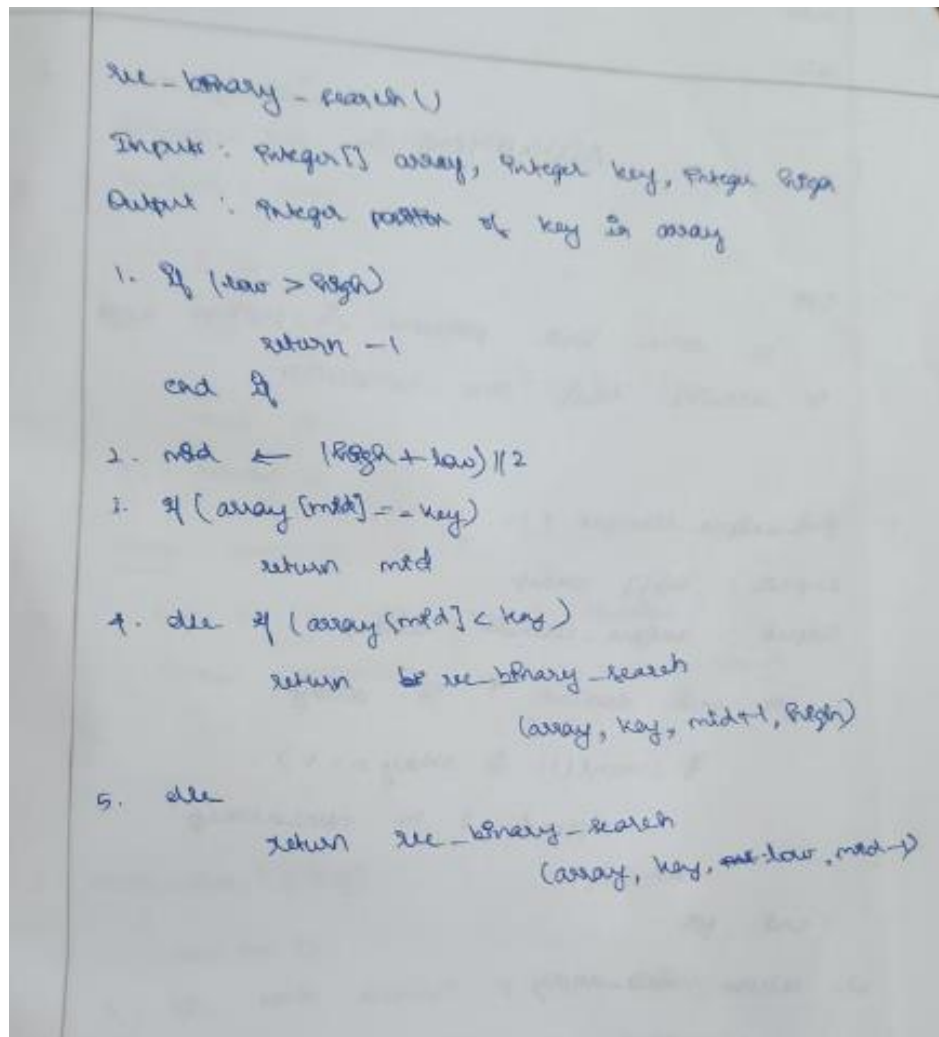 rec_binary_search()
Inputs : integer[] array, integer key, integer high
Output : integer position of key in array
1. if (low > high)
return -1
end if
2. mid ← (high + low)//2
3. if (array[mid] == key)
return mid
4. else if (array[mid] < key)
return rec_binary_search
(array, key, mid+1, high)
5. else
return rec_binary_search
(array, key, low, mid-1)